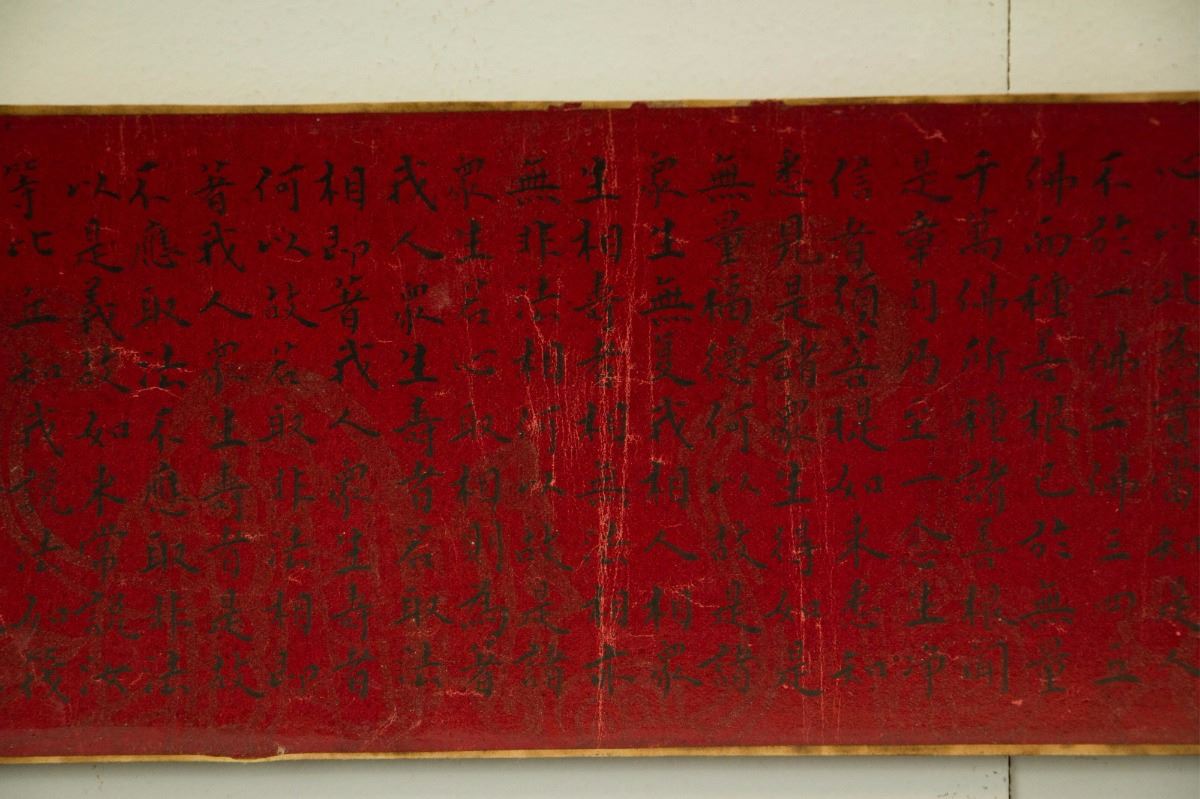 心以此為實當知是人
不於一佛二佛三四五
佛而種善根已於無量
千萬佛所種諸善根聞
是章句乃至一念生淨
信者須菩提如來悉知
悉見是諸眾生得如是
無量福德何以故是諸
眾生無復我相人相眾
生相壽者相無法相亦
無非法相何以故是諸
眾生若心取相則為著
我人眾生壽者若取法
相即著我人眾生壽者
何以故若取非法相即
著我人眾生壽者是故
不應取法不應取非法
以是義故如來常說汝
等比丘知我說法如筏